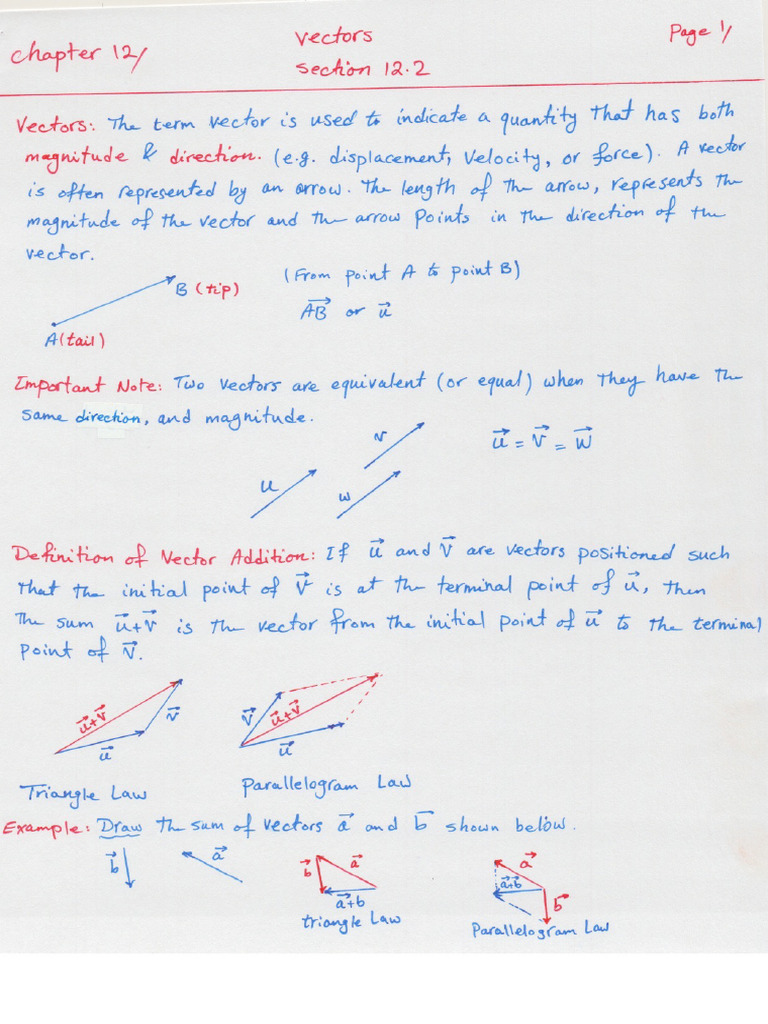 Chapter 12/
Vectors
Section 12.2
Page 1/
Vectors: The term vector is used to indicate a quantity that has both
magnitude & direction. (e.g. displacement, velocity, or force). A vector
is often represented by an arrow. The length of the arrow, represents the
magnitude of the vector and the arrow points in the direction of the
vector.
B (tip)
A(tail)
(From point A to point B)
A⃗B⃗ or u⃗
Important Note: Two vectors are equivalent (or equal) when they have the
same direction, and magnitude.
u
v
w
u⃗ = v⃗ = w⃗
Definition of Vector Addition: If u⃗ and v⃗ are vectors positioned such
that the initial point of v⃗ is at the terminal point of u⃗, then
the sum u⃗+v⃗ is the vector from the initial point of u⃗ to the terminal
point of v⃗.
u⃗+v⃗
v⃗
u⃗
Triangle Law
v⃗
u⃗+v⃗
u⃗
Parallelogram Law
Example: Draw the sum of vectors a⃗ and b⃗ shown below.
b⃗
a⃗
b⃗
a⃗
a⃗+b
triangle Law
a⃗
a⃗+b⃗
b⃗
Parallelogram Law